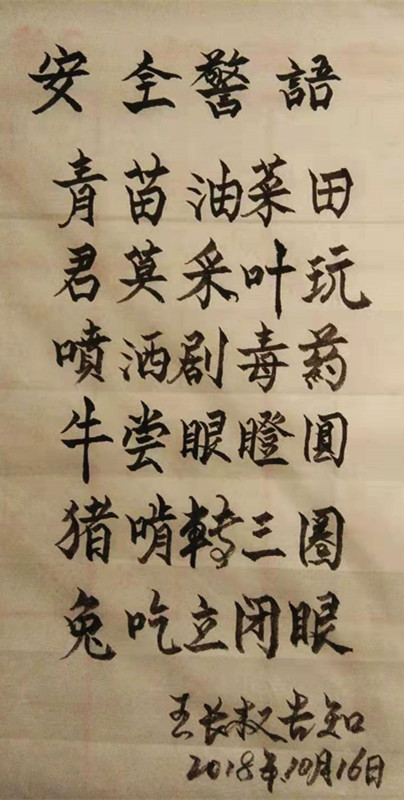 安全警語
青苗油菜田
君莫采叶玩
噴洒剧毒药
牛尝眼瞪圓
猪啃轉三圈
兔吃立闭眼
王长权告知
2018年10月16日